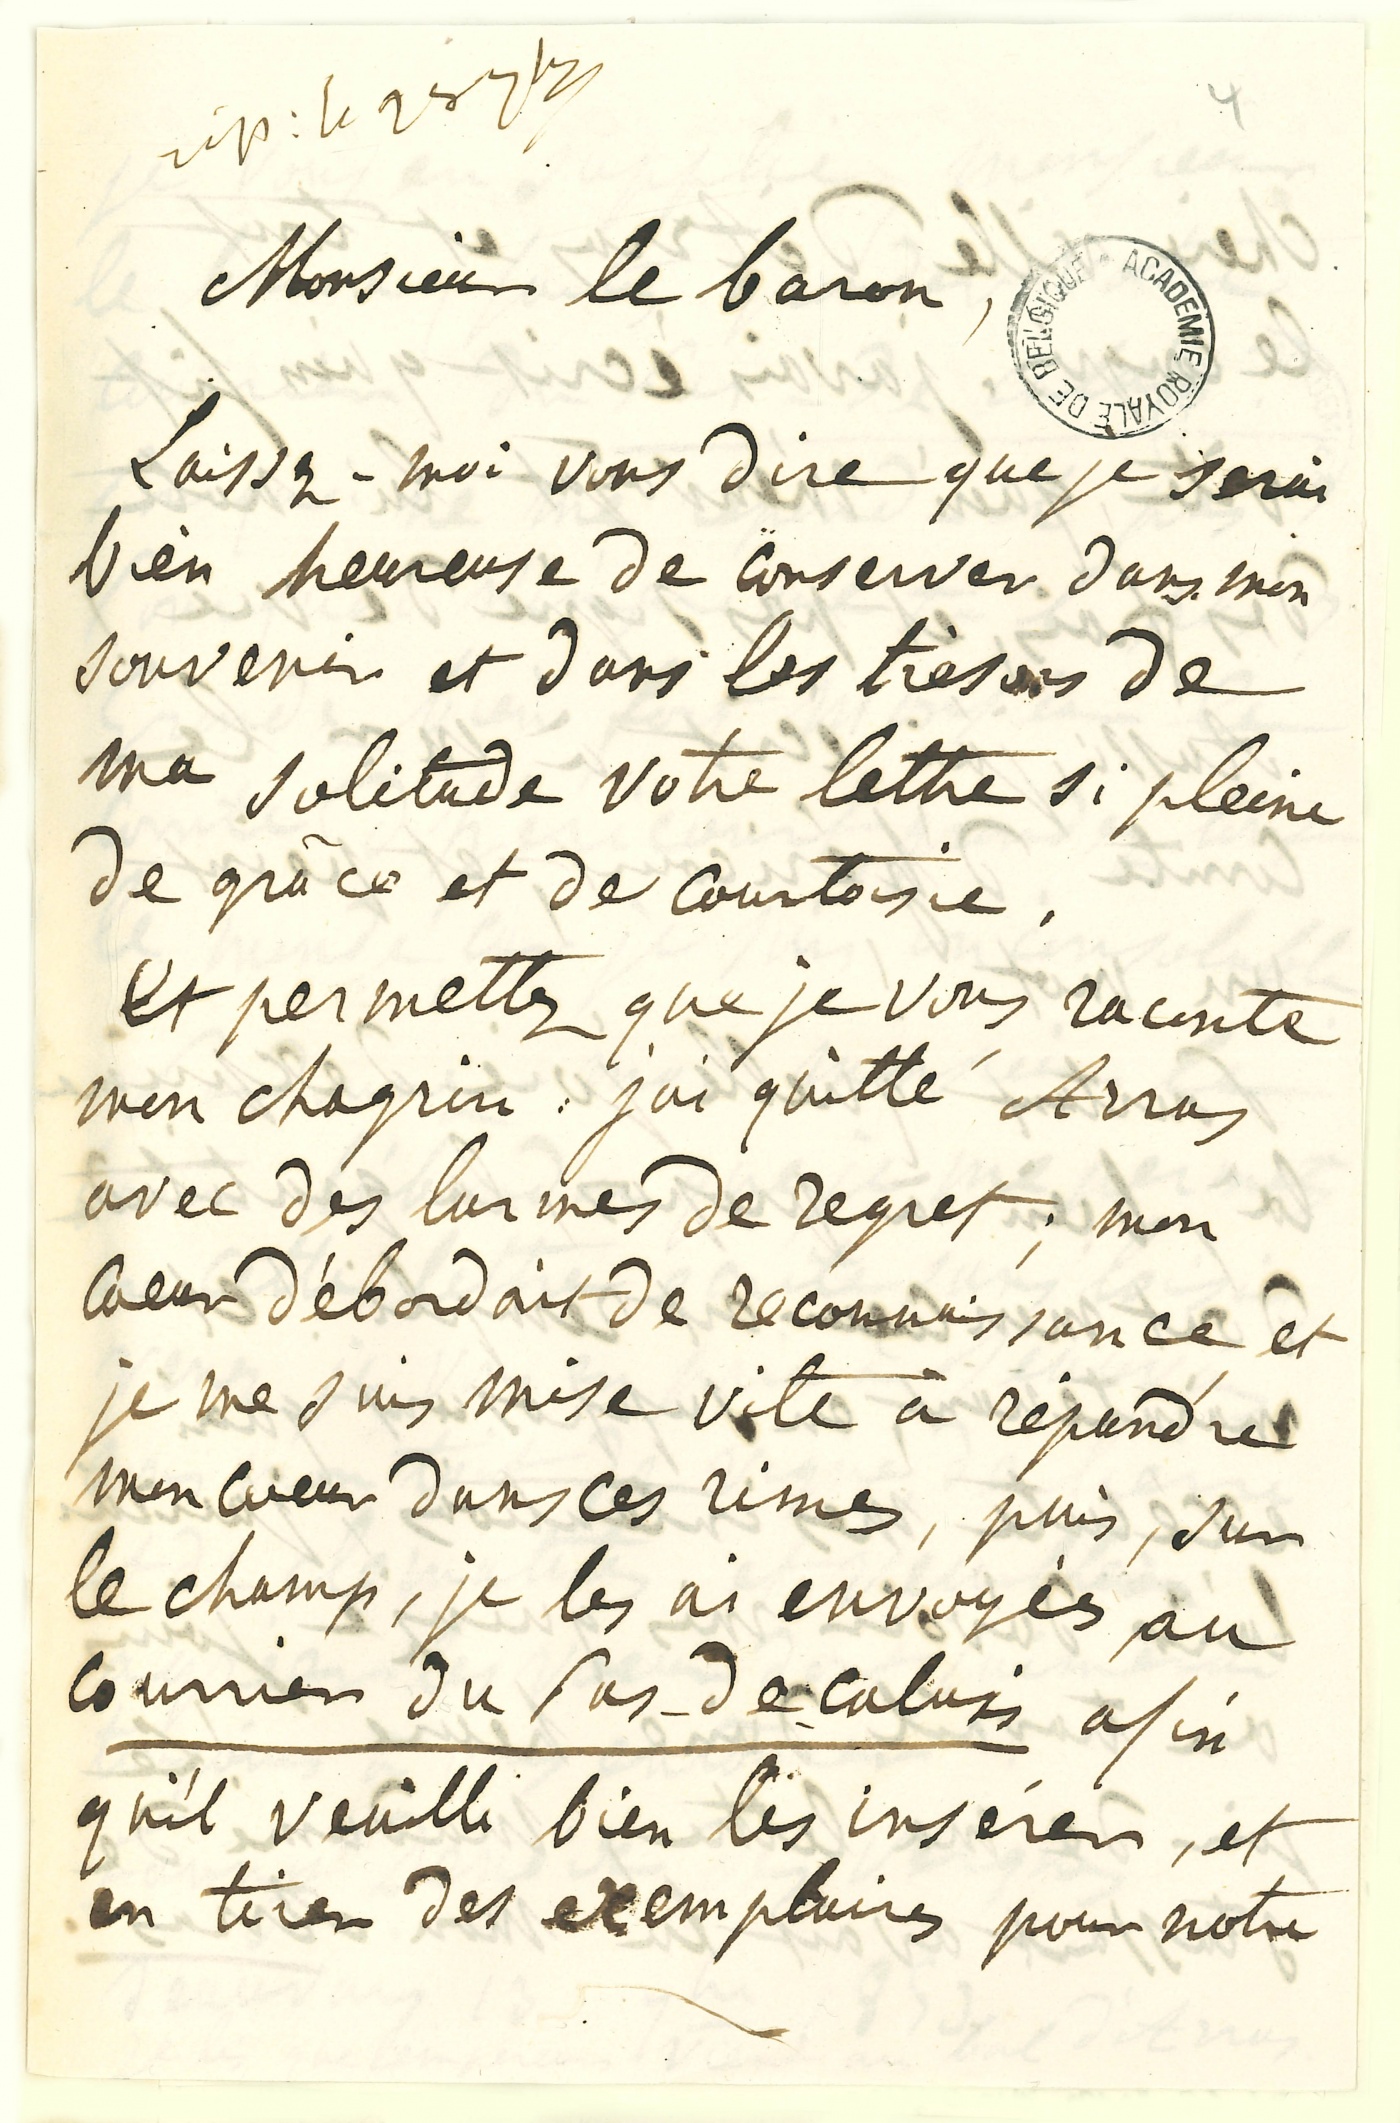 rép: le 28 7bre
4
Monsieur le baron,
ACADEMIE ROYALE DE BELGIQUE
Laissez-moi vous dire que je serai
bien heureuse de conserver dans mon
souvenir et dans les trésors de
ma solitude votre lettre si pleine
de grâce et de courtoisie.
Et permettez que je vous raconte
mon chagrin : j'ai quitté Arras
avec des larmes de regret ; mon
coeur débordait de reconnaissance et
je me suis mise vite à répandre
mon coeur dans ces rimes, puis, sur
le champ, je les ai envoyés au
courrier du Pas-de-calais afin
qu'il veuille bien les insérer, et
en tirer des exemplaires pour notre